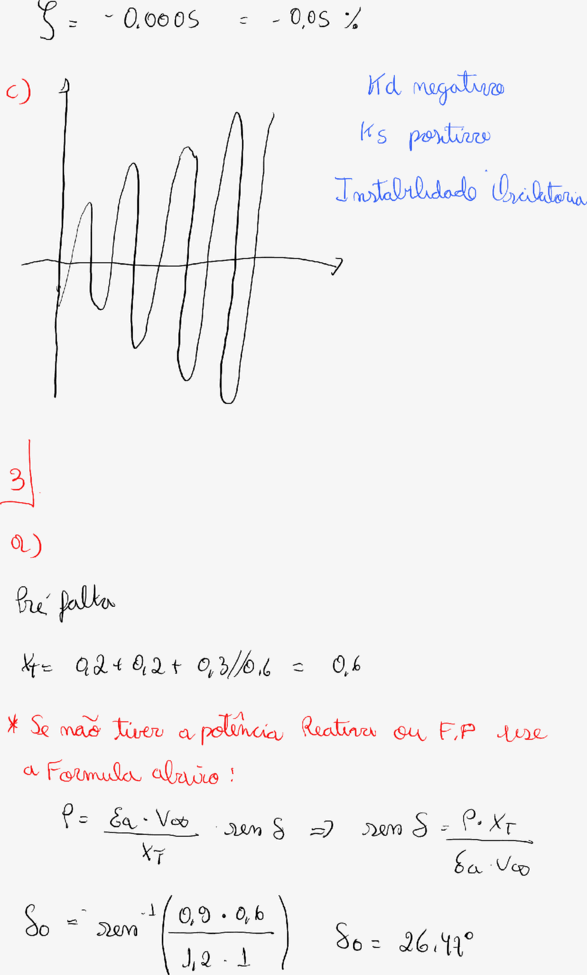 ζ = -0.0005 = -0,05 %
c)
Kd negativo
Ks positivo
Instabilidade Oscilatoria
3
a)
Pré falta
XT = 0,2 + 0,2 + 0,3//0,6 = 0,6
* Se não tiver a potência Reativa ou F.P use
a Formula abaixo:
P = Ea · V∞ / XT · sen δ ⇒ sen δ = P · XT / Ea · V∞
δ0 = sen⁻¹ (0,9 · 0,6 / 1,2 · 1) δ0 = 26.47°